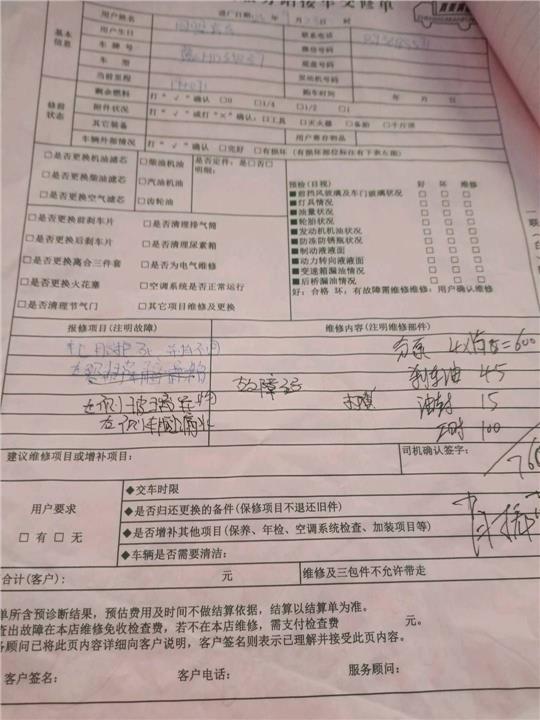 接车交修单
基本信息
用户姓名
进厂日期
时
用户生日
联系电话
车牌号
微信号码
车型
底盘号码
当前里程
发动机号码
购车时间 年 月 日
修前状态
剩余燃料 打“√”确认 □0 □1/4 □1/2 □1
附件状况 打“√”或打“×”确认：□工具 □灭火器 □备胎 □千斤顶
其它装备 用户寄存物品
车辆外部情况 打“√”确认 □完好 □有损坏（有损坏部位标注在下表左面）
□是否更换机油滤芯 □柴油机油 是否定件：是□否□
□是否更换柴油滤芯 □汽油机油 明细：
□是否更换空气滤芯 □齿轮油
□是否更换前刹车片 □是否清理排气筒
□是否更换后刹车片 □是否清理尿素箱
□是否更换离合三件套 □是否为电气维修
□是否更换火花塞 □空调系统是否正常运行
□是否清理节气门 □其它项目维修及更换
预检(目视) 好 坏 维修
■前挡风玻璃及车门玻璃状况 □ □ □
■灯具情况 □ □ □
■油量状况 □ □ □
■轮胎状况 □ □ □
■发动机机油状况 □ □ □
■防冻防锈瓶状况 □ □ □
■制动液液面 □ □ □
■动力转向液液面 □ □ □
■变速箱漏油情况 □ □ □
■后桥漏油情况 □ □ □
好：合格 坏，有故障需维修维修：用户确认维修
报修项目(注明故障) 维修内容(注明维修部件)
分泵 4×150=600
故障码 刹车油 45
油封 15
工时 100
建议维修项目或增补项目： 司机确认签字：
760
用户要求
□有 □无
◆交车时限
◆是否归还更换的备件(保修项目不退还旧件)
◆是否增补其他项目(保养、年检、空调系统检查、加装项目等)
◆车辆是否需要清洁：
合计(客户)： 元 维修及三包件不允许带走
单所含预诊断结果，预估费用及时间不做结算依据，结算以结算单为准。
查出故障在本店维修免收检查费，若不在本店维修，需支付检查费 元。
务顾问已将此页内容详细向客户说明，客户签名则表示已理解并接受此页内容。
客户签名： 客户电话： 服务顾问：